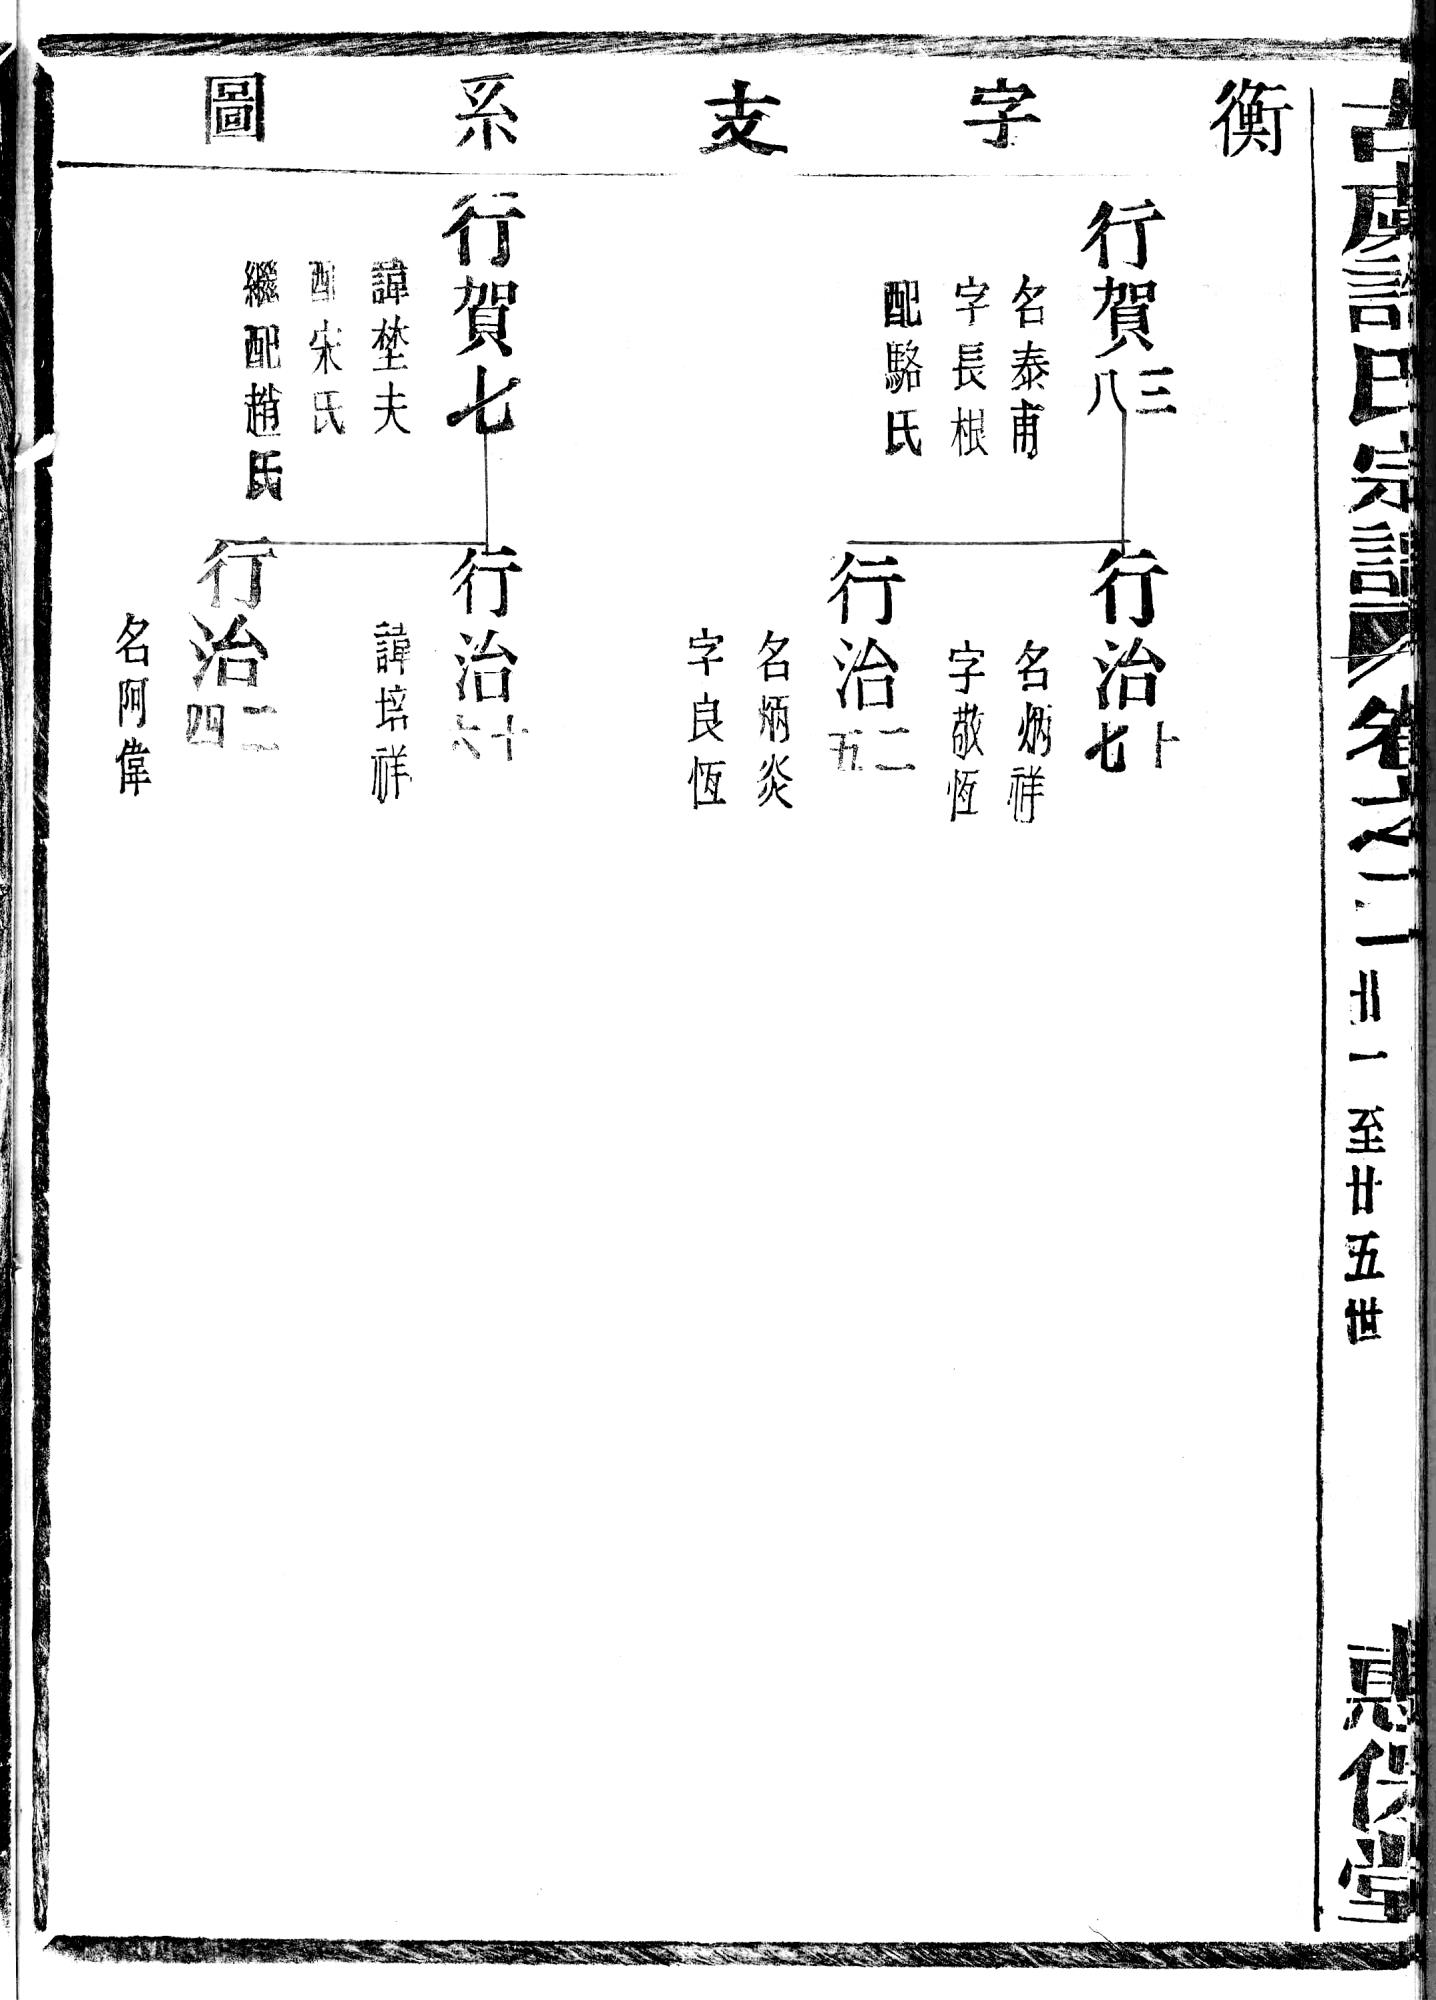 古虞許氏宗譜 卷之二 廿一至廿五世
衡字支系圖
行賀三八
名泰甫
字長根
配駱氏
行治十七
名炳祥
字敬恆
行治二五
名炳炎
字良恆
行賀七
諱埜夫
配宋氏
繼配趙氏
行治十六
諱培祥
行治二四
名阿偉